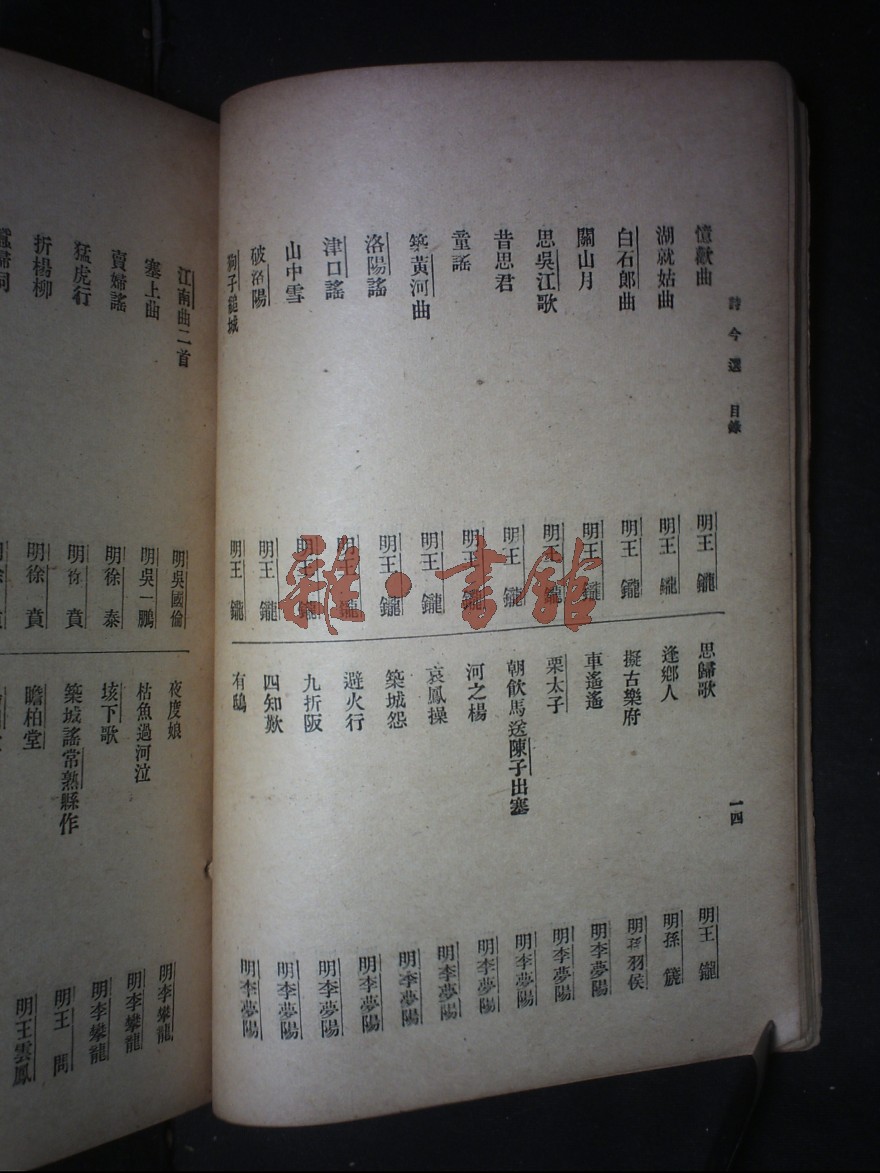 詩今選 目錄
一四
憶歡曲 明王 鑨
湖就姑曲 明王 鑨
白石郎曲 明王 鑨
關山月 明王 鑨
思吳江歌 明王 鑨
昔思君 明王 鑨
童謠 明王 鑨
築黃河曲 明王 鑨
洛陽謠 明王 鑨
津口謠 明王 鑨
山中雪 明王 鑨
破洛陽 明王 鑨
狗子縋城 明王 鑨
思歸歌 明王 鑨
逢鄉人 明孫
擬古樂府 明孫羽侯
車遙遙 明李夢陽
栗太子 明李夢陽
朝飲馬送陳子出塞 明李夢陽
河之楊 明李夢陽
哀鳳操 明李夢陽
築城怨 明李夢陽
避火行 明李夢陽
九折阪 明李夢陽
四知歎 明李夢陽
有鴟 明李夢陽
江南曲二首 明吳國倫
塞上曲 明吳一鵬
賣婦謠 明徐 泰
猛虎行 明徐 賁
折楊柳 明徐 賁
夜度娘 明李攀龍
枯魚過河泣 明李攀龍
垓下歌 明李攀龍
築城謠常熟縣作 明王 問
瞻柏堂 明王雲鳳
雜·書館